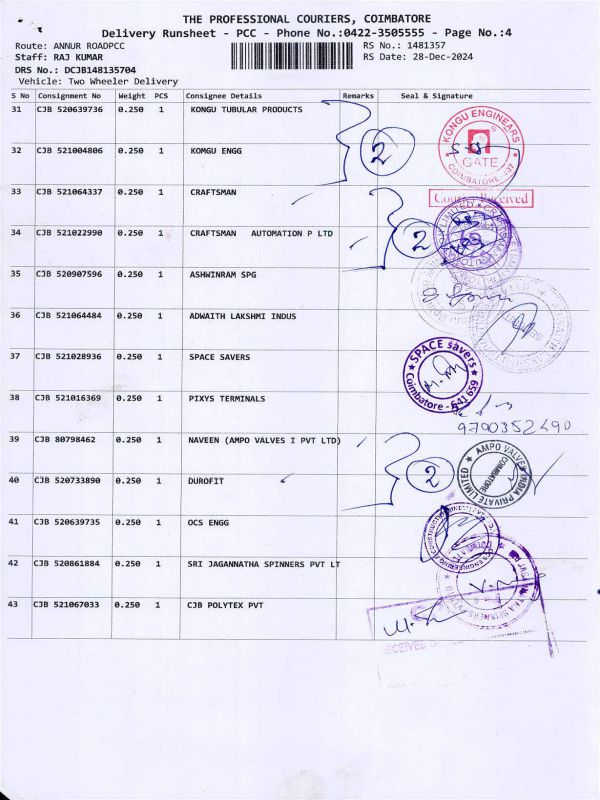 THE PROFESSIONAL COURIERS, COIMBATORE
Delivery Runsheet - PCC - Phone No.:0422-3505555 - Page No.:4
Route: ANNUR ROADPCC RS No.: 1481357
Staff: RAJ KUMAR RS Date: 28-Dec-2024
DRS No.: DCJB148135704
Vehicle: Two Wheeler Delivery
S No Consignment No Weight PCS Consignee Details Remarks Seal & Signature
31 CJB 520639736 0.250 1 KONGU TUBULAR PRODUCTS
32 CJB 521004806 0.250 1 KOMGU ENGG
2
KONGU ENGINEARS
GATE
COIMBATORE
Courier Received
33 CJB 521064337 0.250 1 CRAFTSMAN
34 CJB 521022990 0.250 1 CRAFTSMAN AUTOMATION P LTD
2
35 CJB 520907596 0.250 1 ASHWINRAM SPG
36 CJB 521064484 0.250 1 ADWAITH LAKSHMI INDUS
37 CJB 521028936 0.250 1 SPACE SAVERS
SPACE savers
Coimbatore - 641 659
38 CJB 521016369 0.250 1 PIXYS TERMINALS
9790352490
39 CJB 80798462 0.250 1 NAVEEN (AMPO VALVES I PVT LTD)
40 CJB 520733890 0.250 1 DUROFIT
2
AMPO VALVES INDIA PRIVATE LIMITED
COIMBATORE
41 CJB 520639735 0.250 1 OCS ENGG
42 CJB 520861884 0.250 1 SRI JAGANNATHA SPINNERS PVT LT
43 CJB 521067033 0.250 1 CJB POLYTEX PVT
RECEIVED